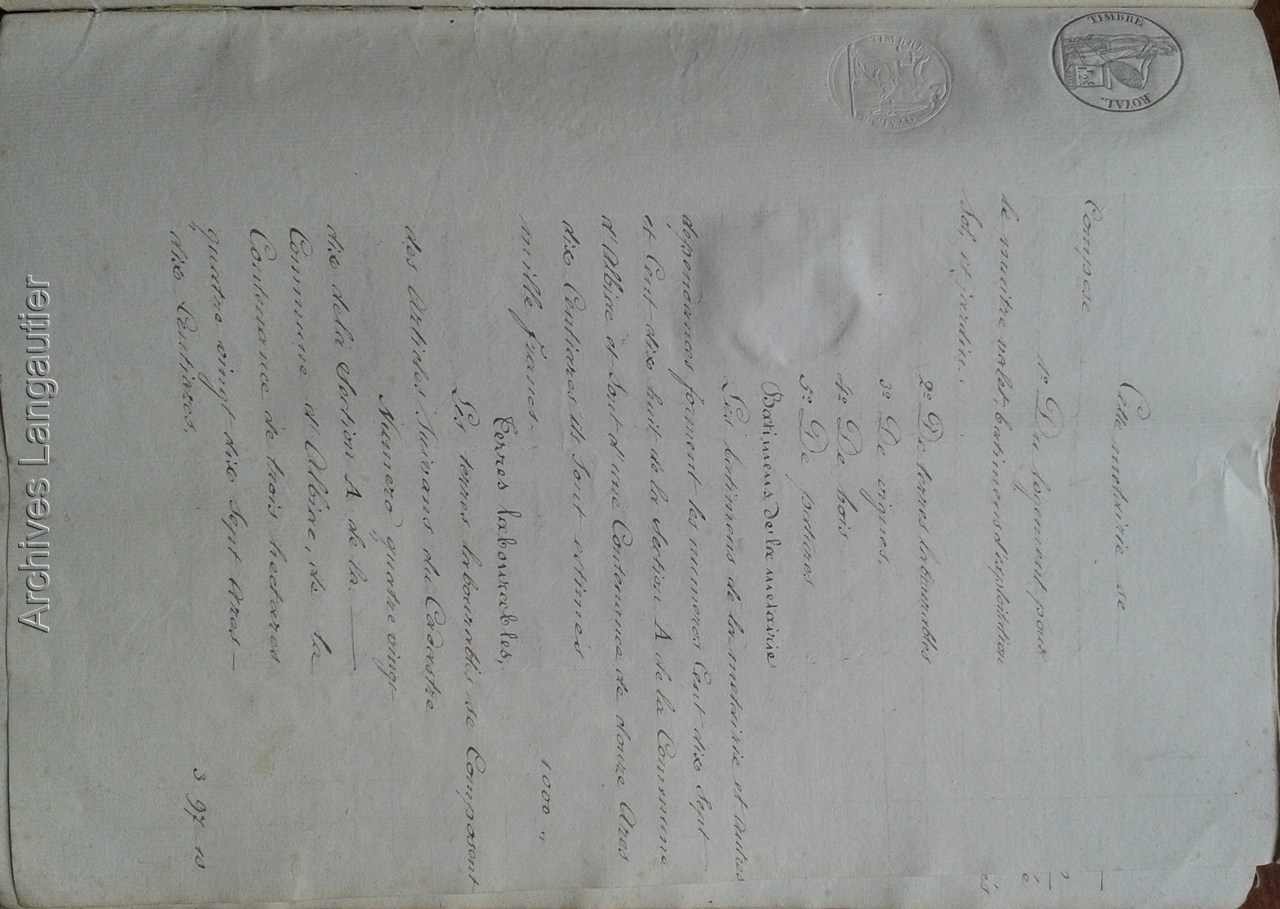 TIMBRE ROYAL
TIMBRE
Cette métairie se
Compose
1º Du logement pour
le maître valet, batimens d'exploitation
Sol, et jardin.
2º De terres labourables
3º De vignes.
4º De bois
5º De patures
Batimens de la métairie
Les batimens de la métairie et autres
dépendances forment les numeros Cent dix Sept
et Cent dix huit de la Section A de la Commune
d'Albine et Sont d'une Contenance de douze Ares
dix Centiares ils Sont estimés
mille francs. 1000 "
Terres labourables,
Les terres labourables se Composent
des Articles Suivans du Cadastre
Numero quatre vingt
dix de la Section A de la
Commune d'Albine, de la
Contenance de trois hectares
quatre vingt dix Sept Ares
dix Centiares, 3 97 10
és
Archives Langautier